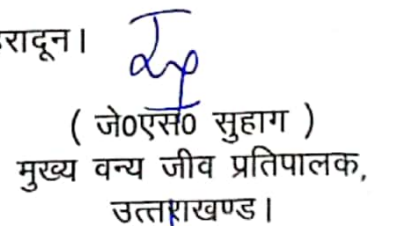 ( जे0एस0 सुहाग )
मुख्य वन्य जीव प्रतिपालक,
उत्तराखण्ड।